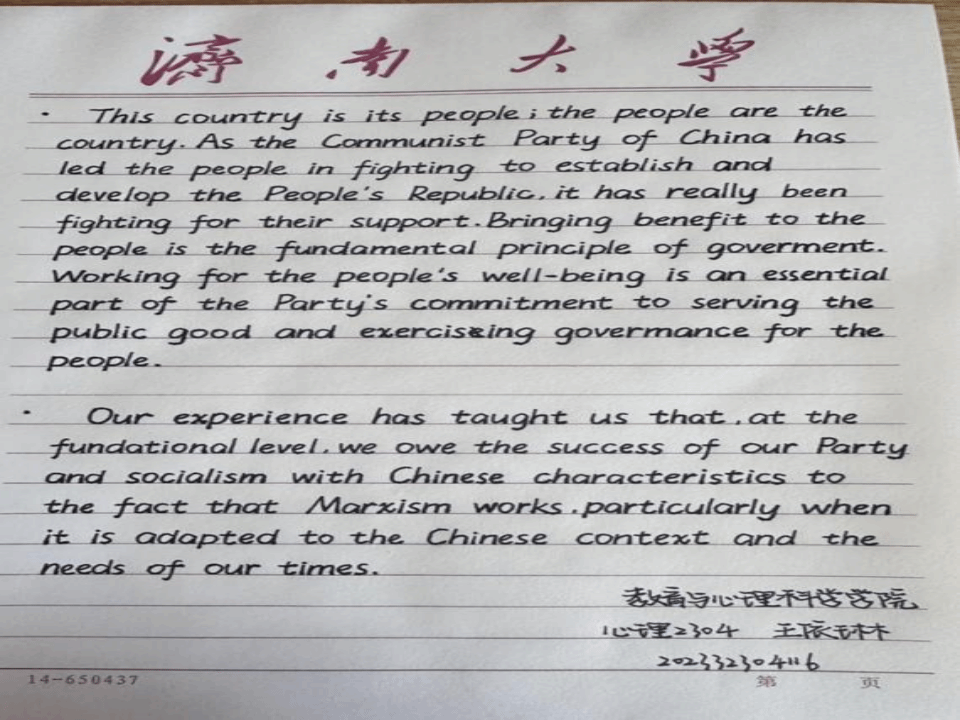 濟南大學
· This country is its people; the people are the
country. As the Communist Party of China has
led the people in fighting to establish and
develop the People's Republic, it has really been
fighting for their support. Bringing benefit to the
people is the fundamental principle of goverment.
Working for the people's well-being is an essential
part of the Party's commitment to serving the
public good and exercising govermance for the
people.
· Our experience has taught us that, at the
fundational level, we owe the success of our Party
and socialism with Chinese characteristics to
the fact that Marxism works, particularly when
it is adapted to the Chinese context and the
needs of our times.
教育与心理科学学院
心理2304 王依琳
202332304116
14-650437 第 页